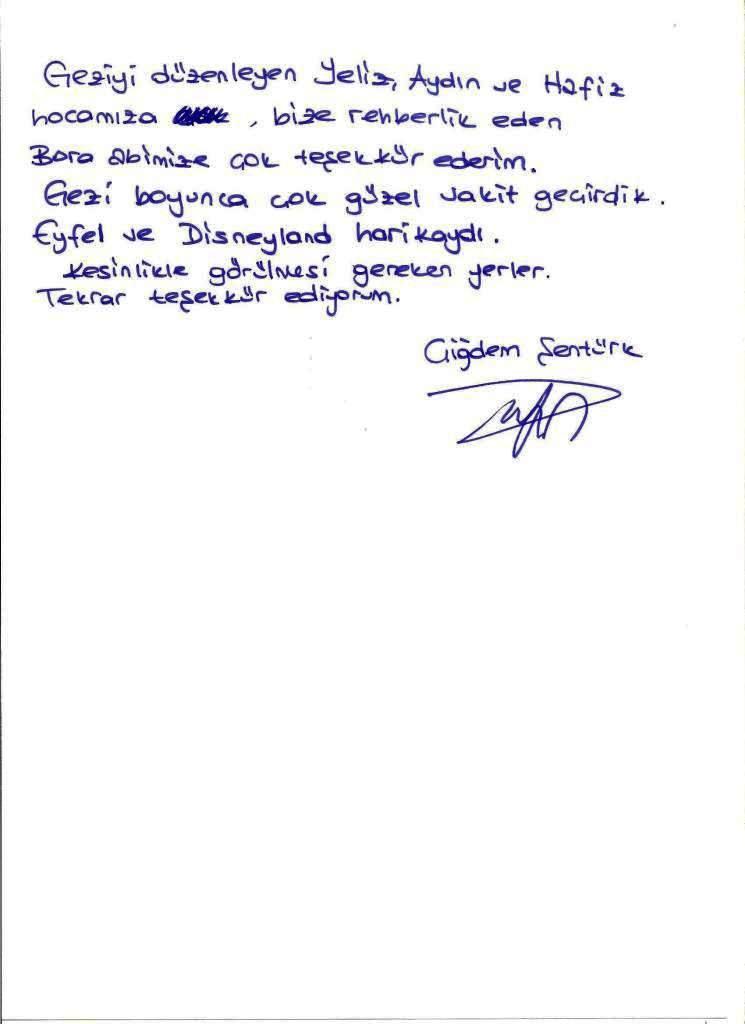 Geziyi düzenleyen Yeliz, Aydın ve Hafiz
hocamıza , bize rehberlik eden
Bora abimize çok teşekkür ederim.
Gezi boyunca çok güzel vakit geçirdik.
Eyfel ve Disneyland harikaydı.
Kesinlikle görülmesi gereken yerler.
Tekrar teşekkür ediyorum.
Çiğdem Şentürk